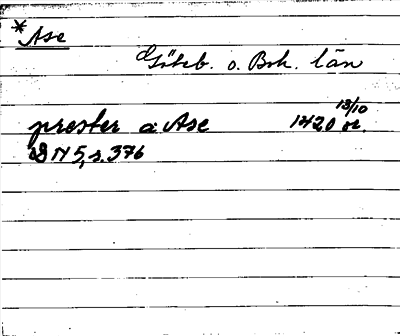 *Ase
Göteb. o. Boh. län
prester a Ase 1420 13/10 or.
DN 5, s. 376